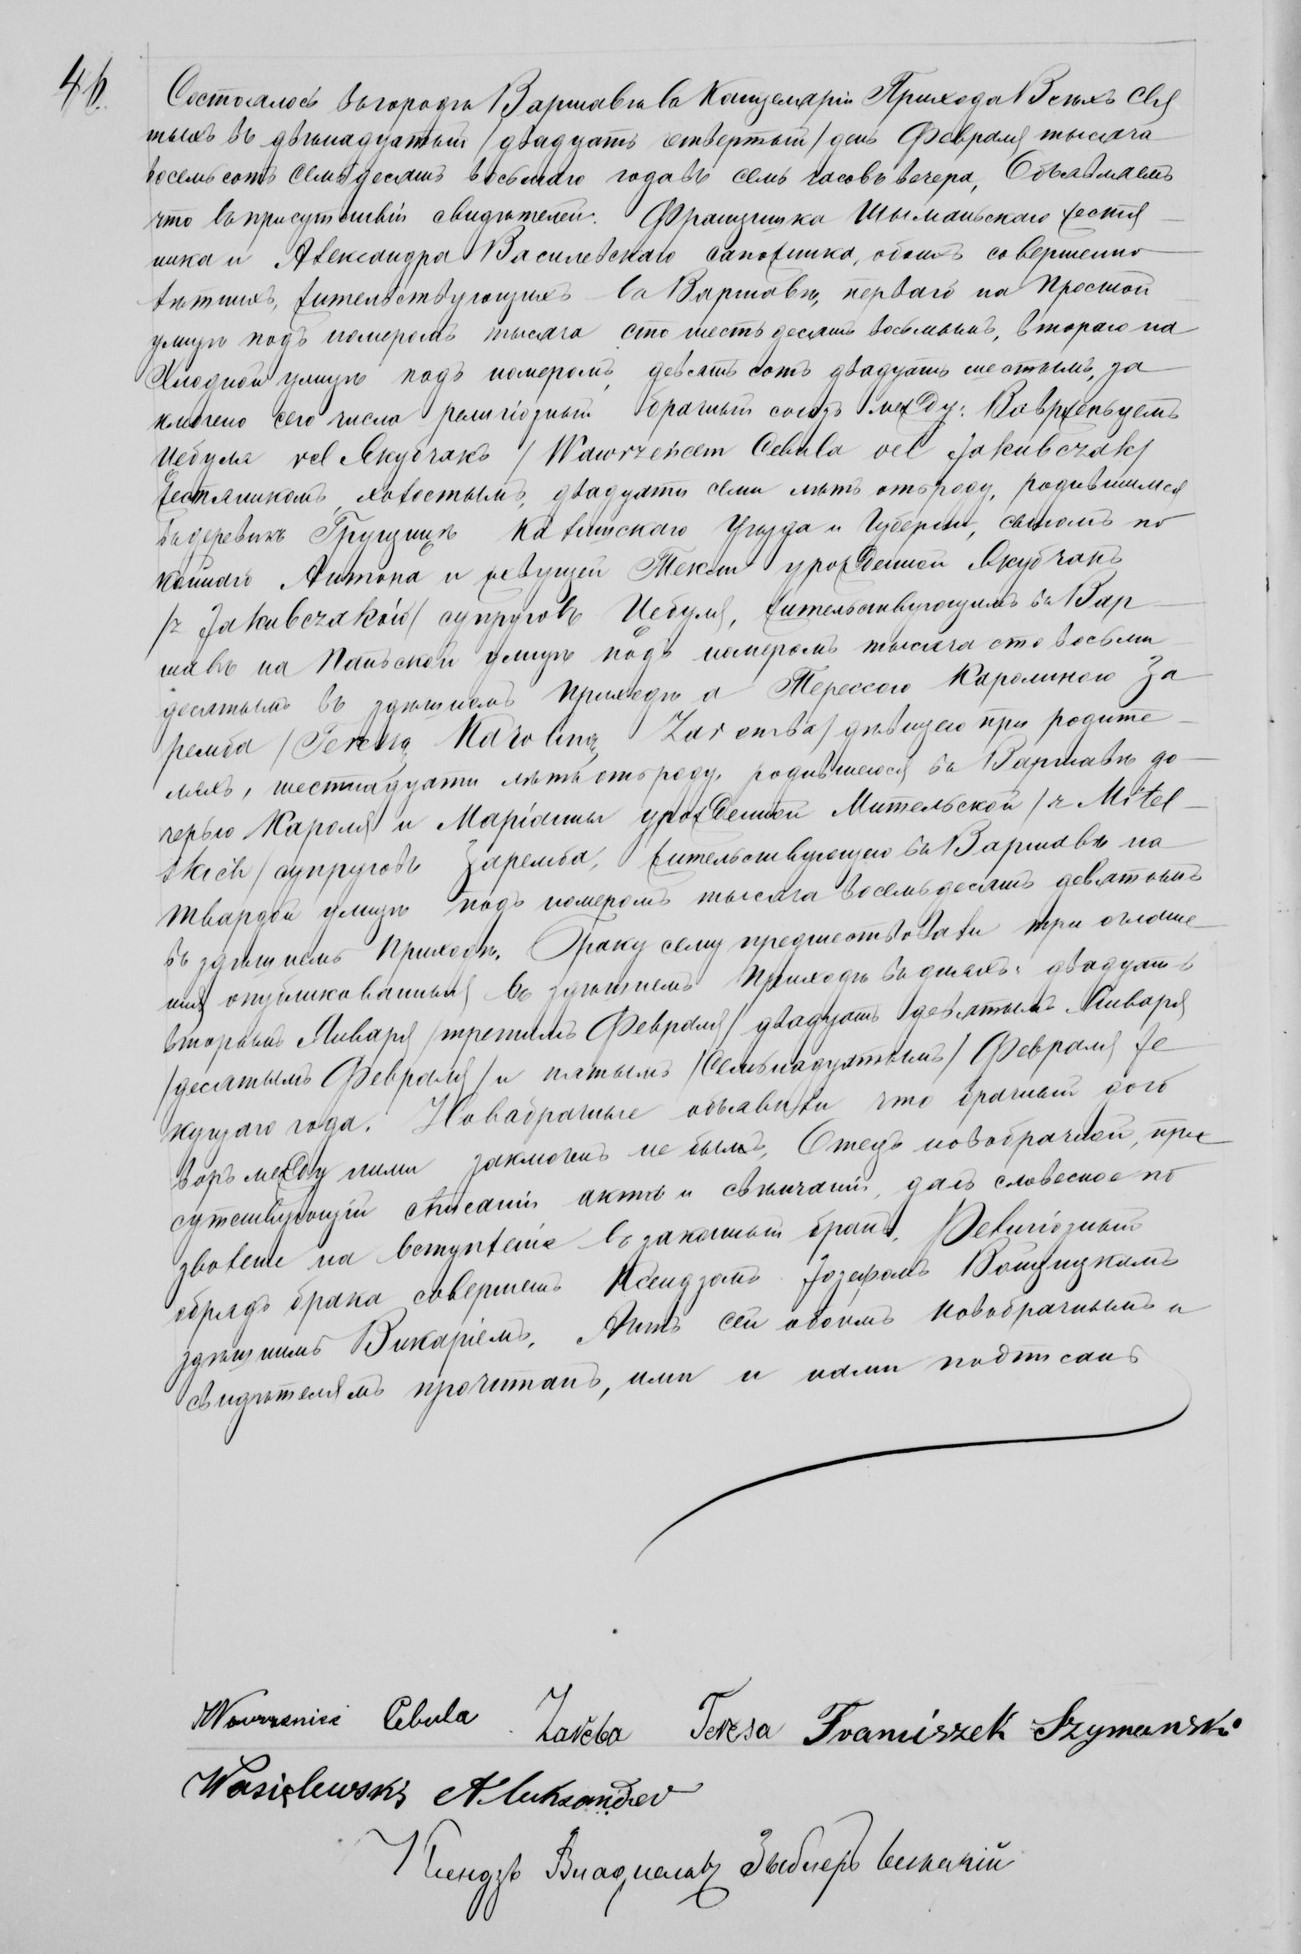 46.
Состоялось въ городѣ Варшавѣ въ Канцеляріи Прихода Всѣхъ Свя
тыхъ въ двѣнадцатый /двадцать четвертый/ день Февраля тысяча
восемьсотъ семьдесятъ восьмаго года въ семь часовъ вечера, Объявляемъ
что въ присутствіи свидѣтелей: Францишка Шыманьскаго жестя
ника и Александра Василевскаго сапожника, обоихъ совершенно
лѣтнихъ, жительствующихъ въ Варшавѣ, перваго на Простой
улицѣ подъ номеромъ тысяча сто шестьдесятъ восьмымъ, втораго на
Хлодной улицѣ подъ номеромъ девятьсотъ двадцать шестымъ, за
ключено сего числа религіозный брачный союзъ между: Ваврженьцемъ
Цебуля vel Якубчакъ /Wawrzeńcem Cebula vel Jakubczak/
жестяникомъ, холостымъ, двадцати семи лѣтъ отъ роду, родившимся
въ деревнѣ Калишскаго Уѣзда и Губерніи, сыномъ по
койнаго Антона и живущей Теклы урожденной Якубчакъ
/z Jakubczaków/ супруговъ Цебуля, жительствующимъ въ Вар
шавѣ на Паньской улицѣ подъ номеромъ тысяча сто восьми
десятымъ въ здѣшнемъ Приходѣ а Терессою Каролиною За
ремба /Teresą Karoliną Zaremba/ дѣвицею при родите
ляхъ, шестнадцати лѣтъ отъ роду, родившеюся въ Варшавѣ до
черью Кароля и Маріанны урожденной Мительской /z Mitel
skich/ супруговъ Заремба, жительствующею въ Варшавѣ на
Твардой улицѣ подъ номеромъ тысяча восемьдесятъ девятымъ
въ здѣшнемъ Приходѣ. Браку сему предшествовали три оглаше
нія опубликованныя въ здѣшнемъ Приходѣ въ дняхъ: двадцать
вторымъ Января /третьимъ Февраля/ двадцать девятымъ Января
/десятымъ Февраля/ и пятымъ /семьнадцатымъ/ Февраля те
кущаго года. Новобрачные объявили что брачный дого
воръ между ними заключенъ не былъ. Отецъ новобрачной, при
сутствующій списанію акта и свѣнчанію, далъ словесное по
зволеніе на вступленіе въ законный бракъ. Религіозный
обрядъ брака совершенъ Ксендзомъ Іозефомъ
здѣшнимъ Викаріемъ. Актъ сей обоимъ новобрачнымъ и
свидѣтелямъ прочитанъ, ими и нами подписанъ
Wawrzeniec Cebula Zaręba Teresa Franciszek Szymanski
Wasielewski Aleksander
Ксендзъ викарій